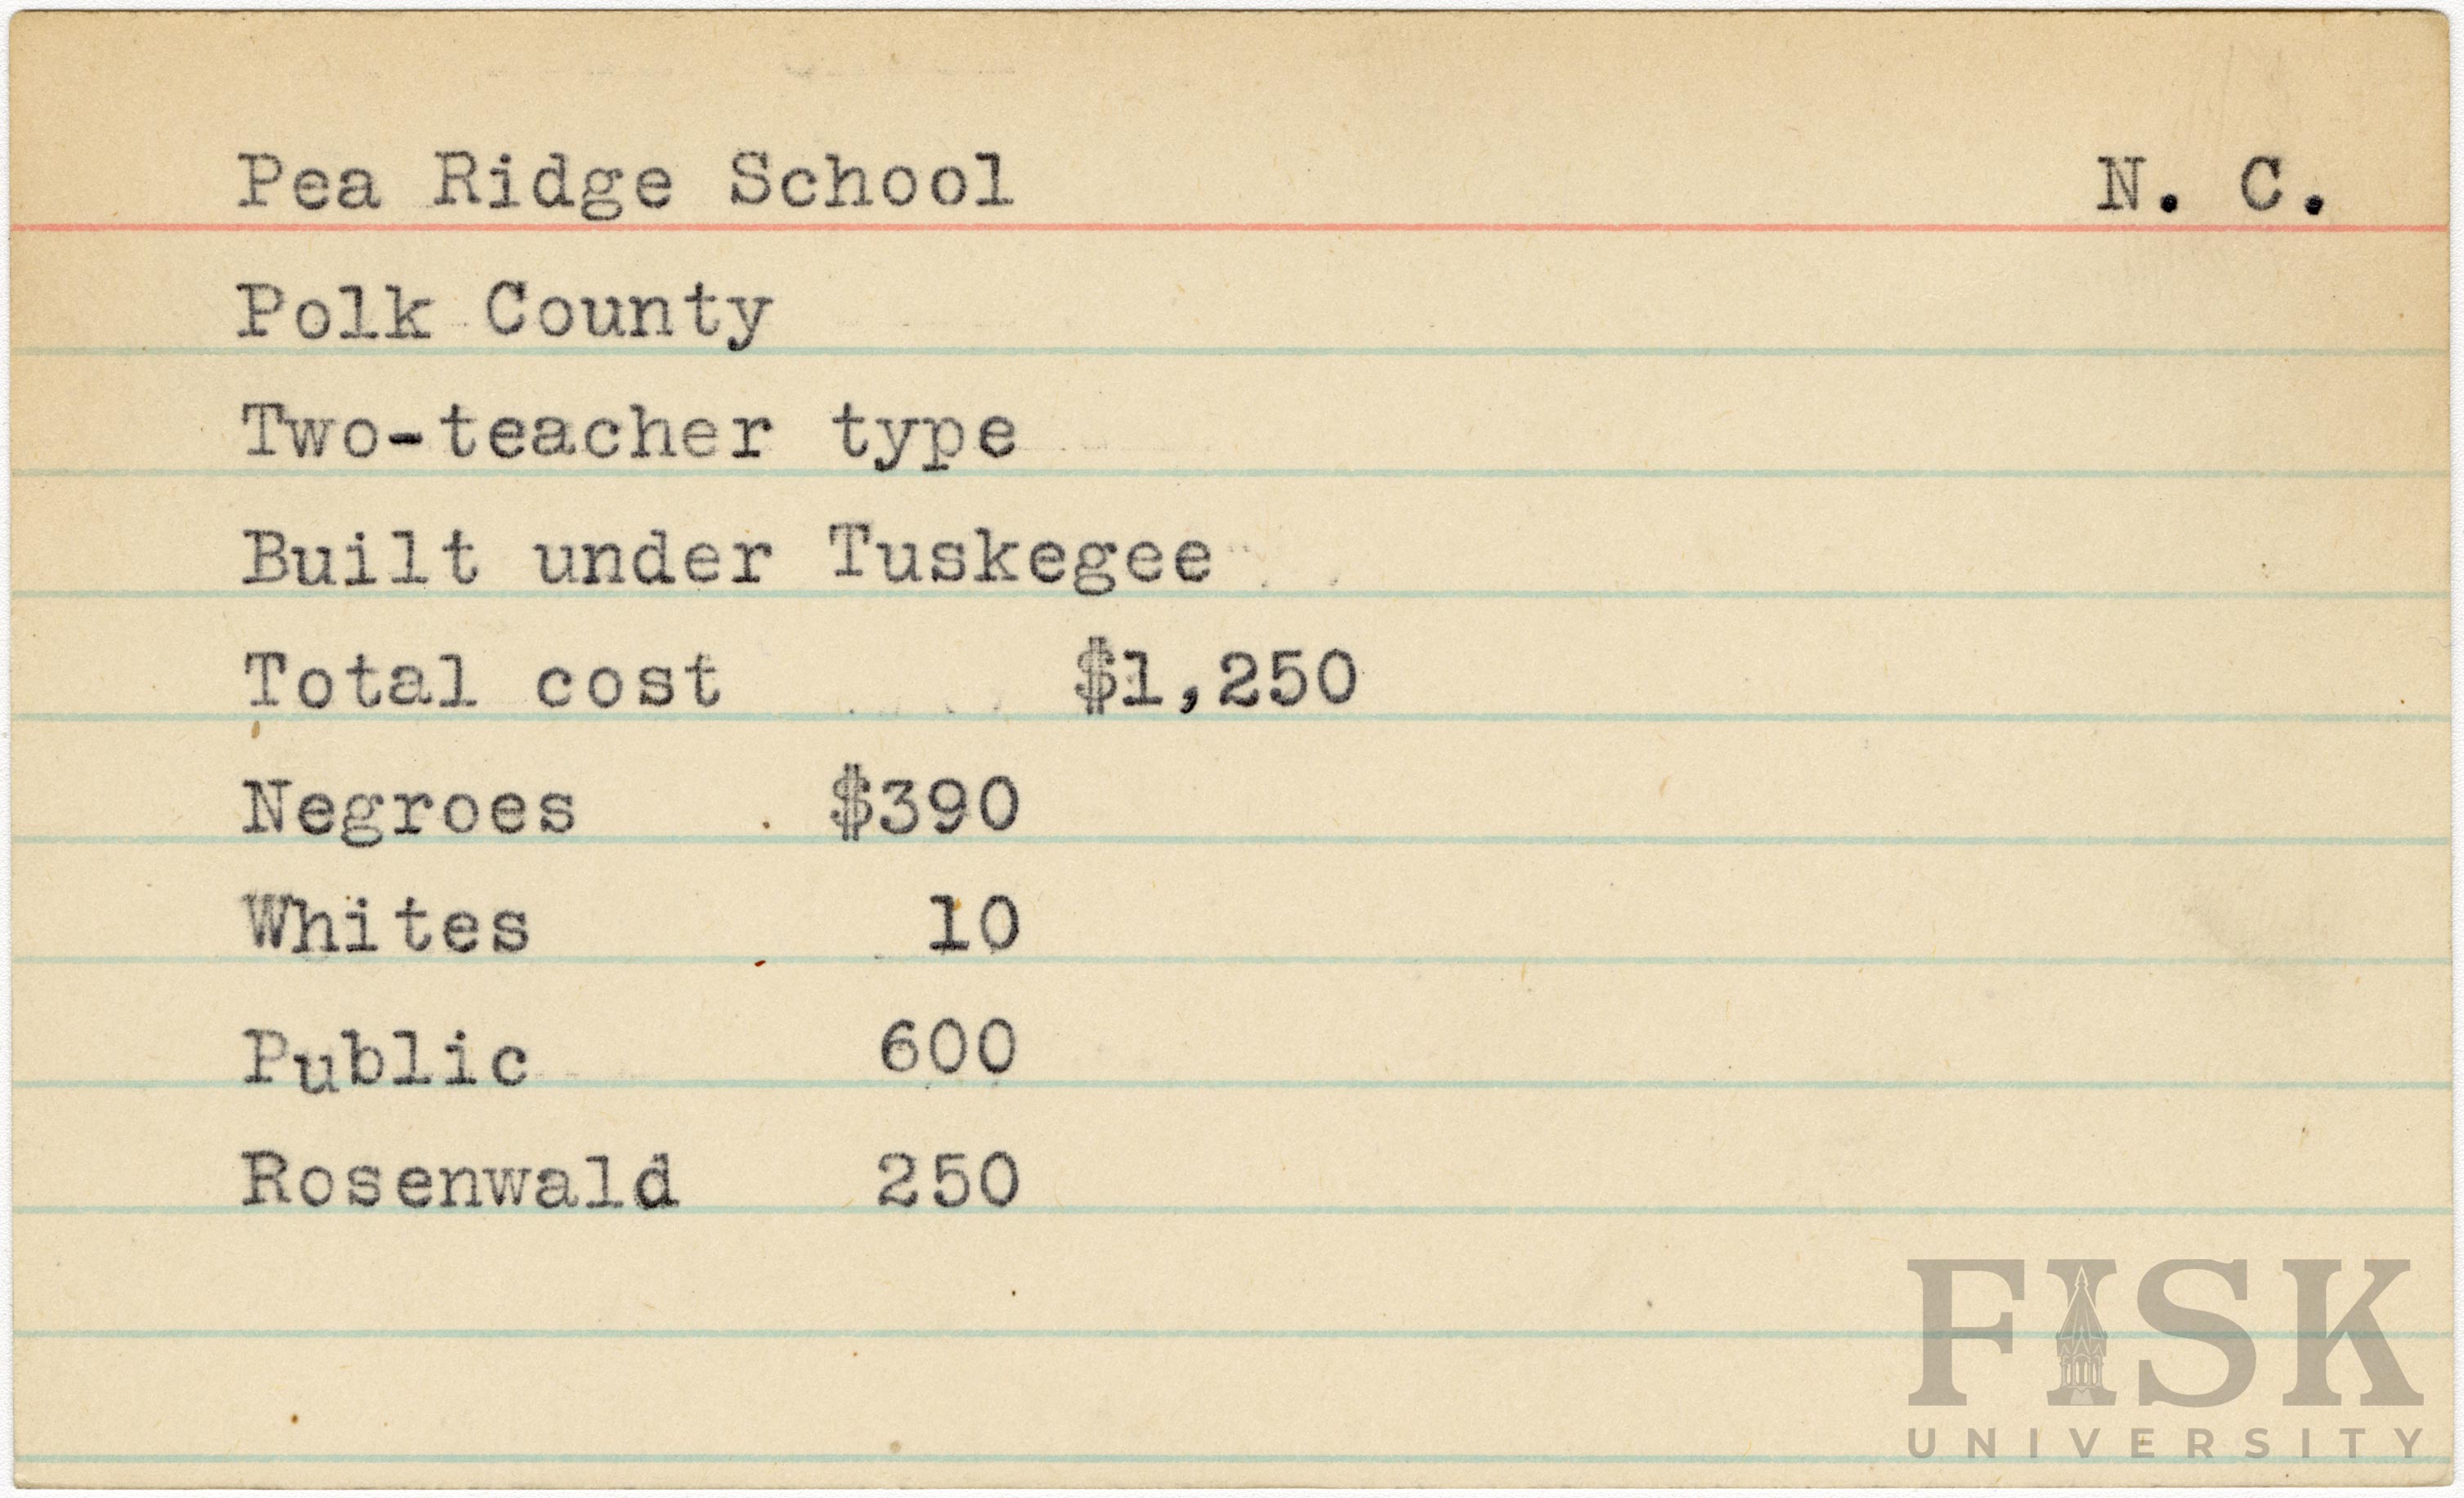 Pea Ridge School N. C.
Polk County
Two-teacher type
Built under Tuskegee
Total cost $1,250
Negroes $390
Whites 10
Public 600
Rosenwald 250
FISK
UNIVERSITY